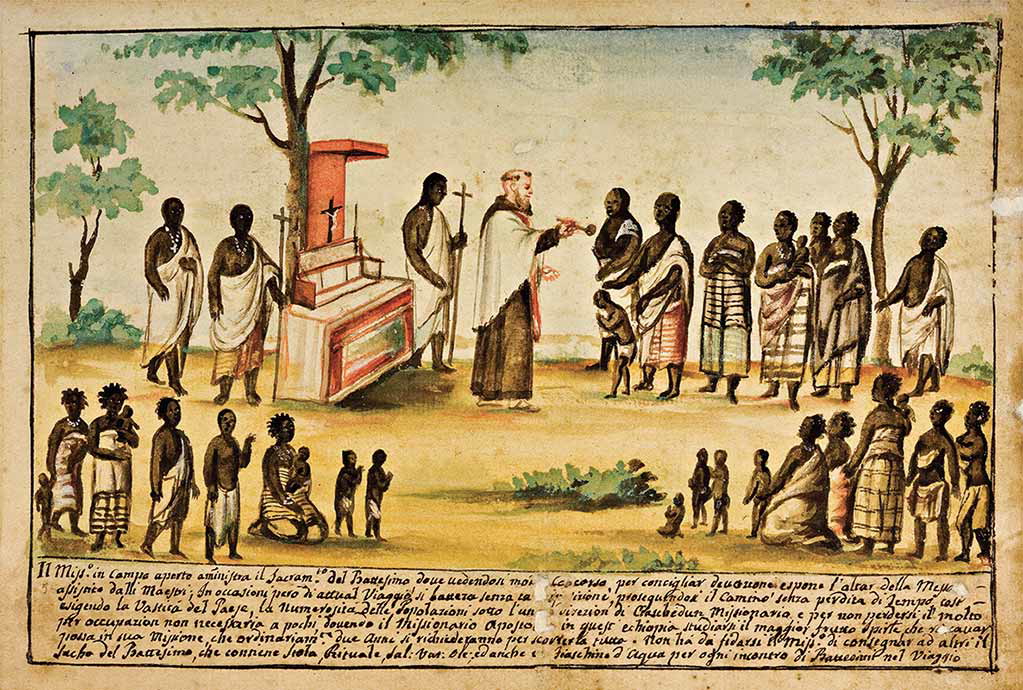 Il Miss.o in Campo aperto aministra il Sacram.to del Battesimo dove vedendosi Concorso, per concigliar devozione espone l'altar della
assistito dalli Maestri; In occasione però di attual Viaggio si battezza senza proseguendosi il Camino senza perdita di tempo, così
esigendo la Vastità del Paese, la Numerosità delle Popolazioni sotto Direzion di Missionario, e per non perdersi il molto
per occupazion non necesaria a pochi dovendo il Missionario Aposto in quest' ethiopia studiarsi il maggior frutto Spirle, che ricavar
possa in sua Missione, che ordinariam.te due Anni si richiederanno per tutta. Non ha da fidarsi il Miss.o di consignar ad altri il
Sacho del Battesimo, che contiene Stola, Rituale, Sal: Vas: Ole: ed anche fiaschino d'Aqua per ogni incontro di nel Viaggio